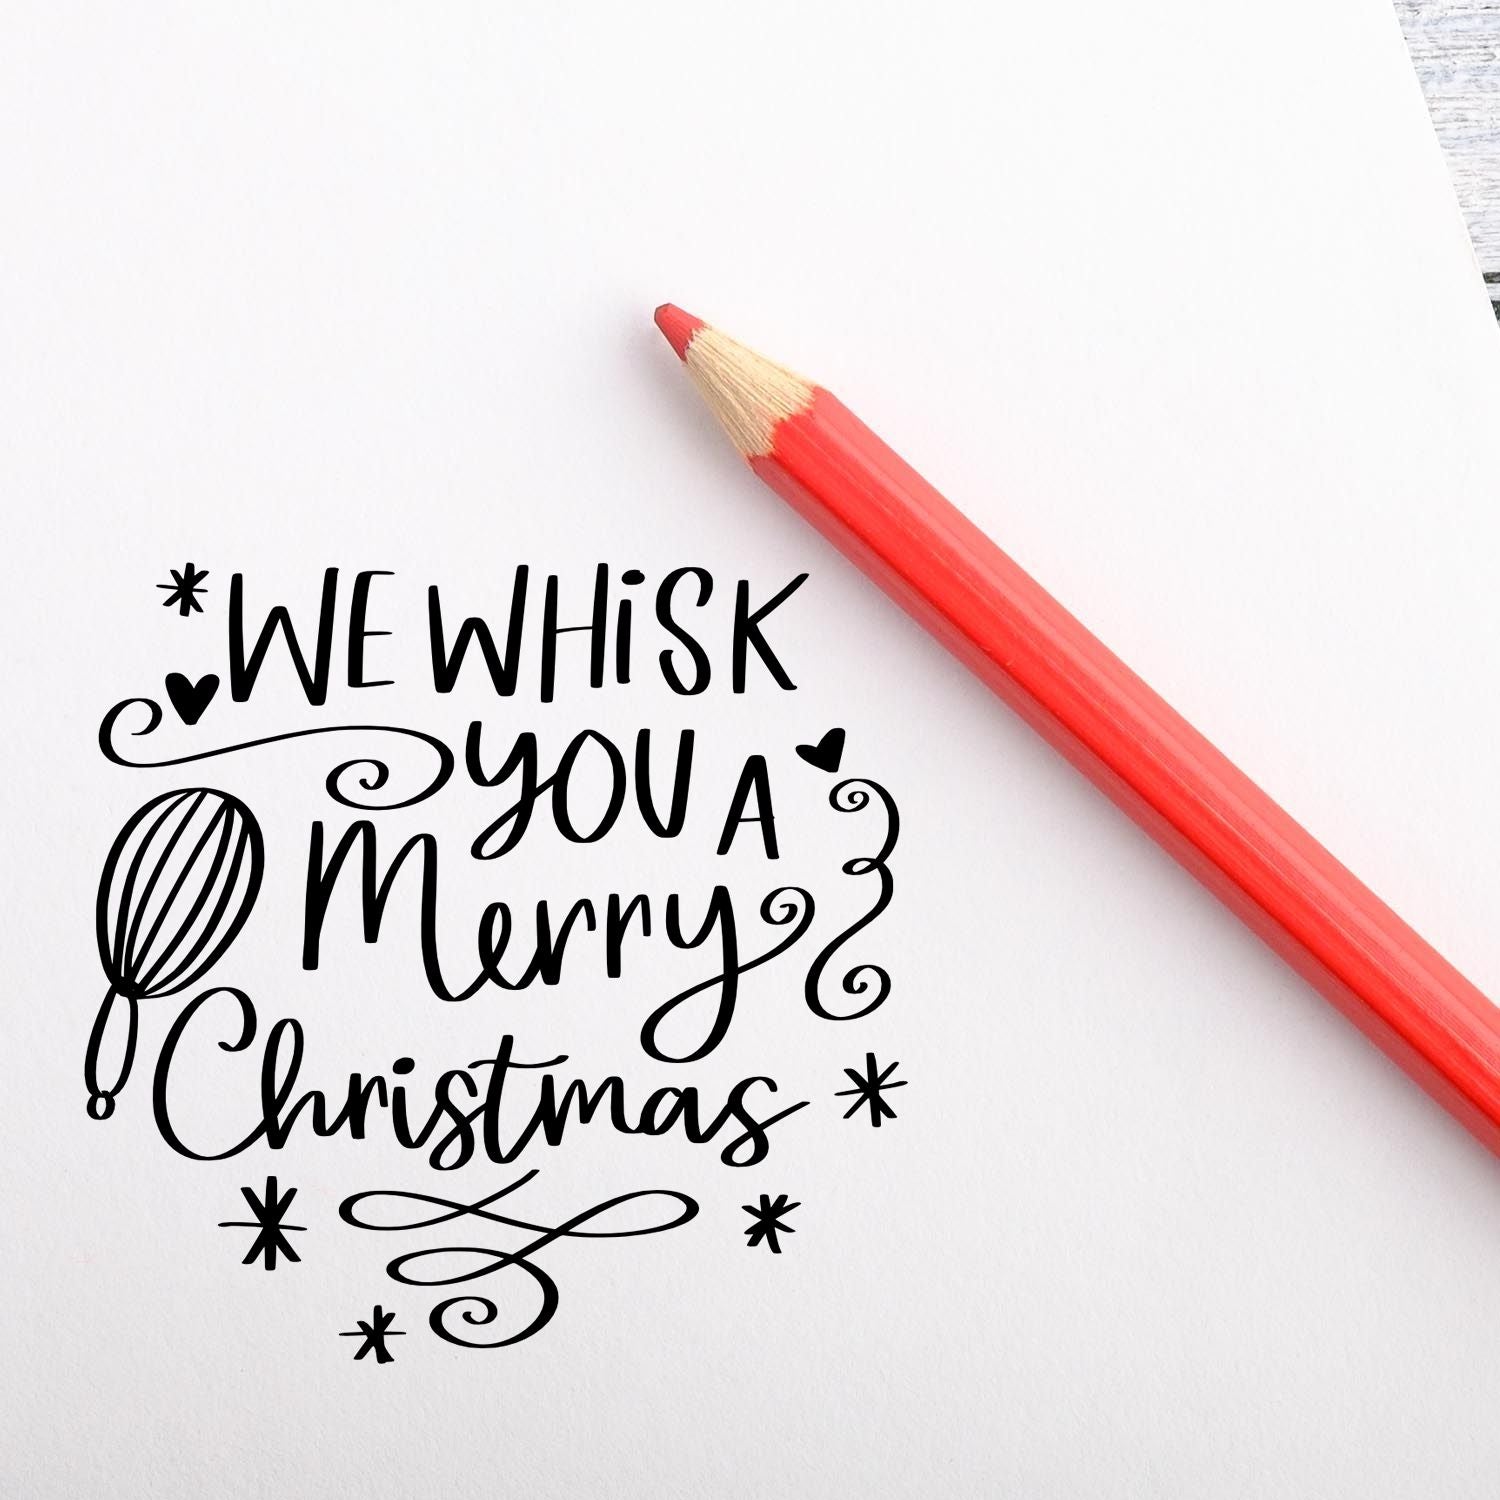 WE WHiSK
yOU A
Merry
Christmas